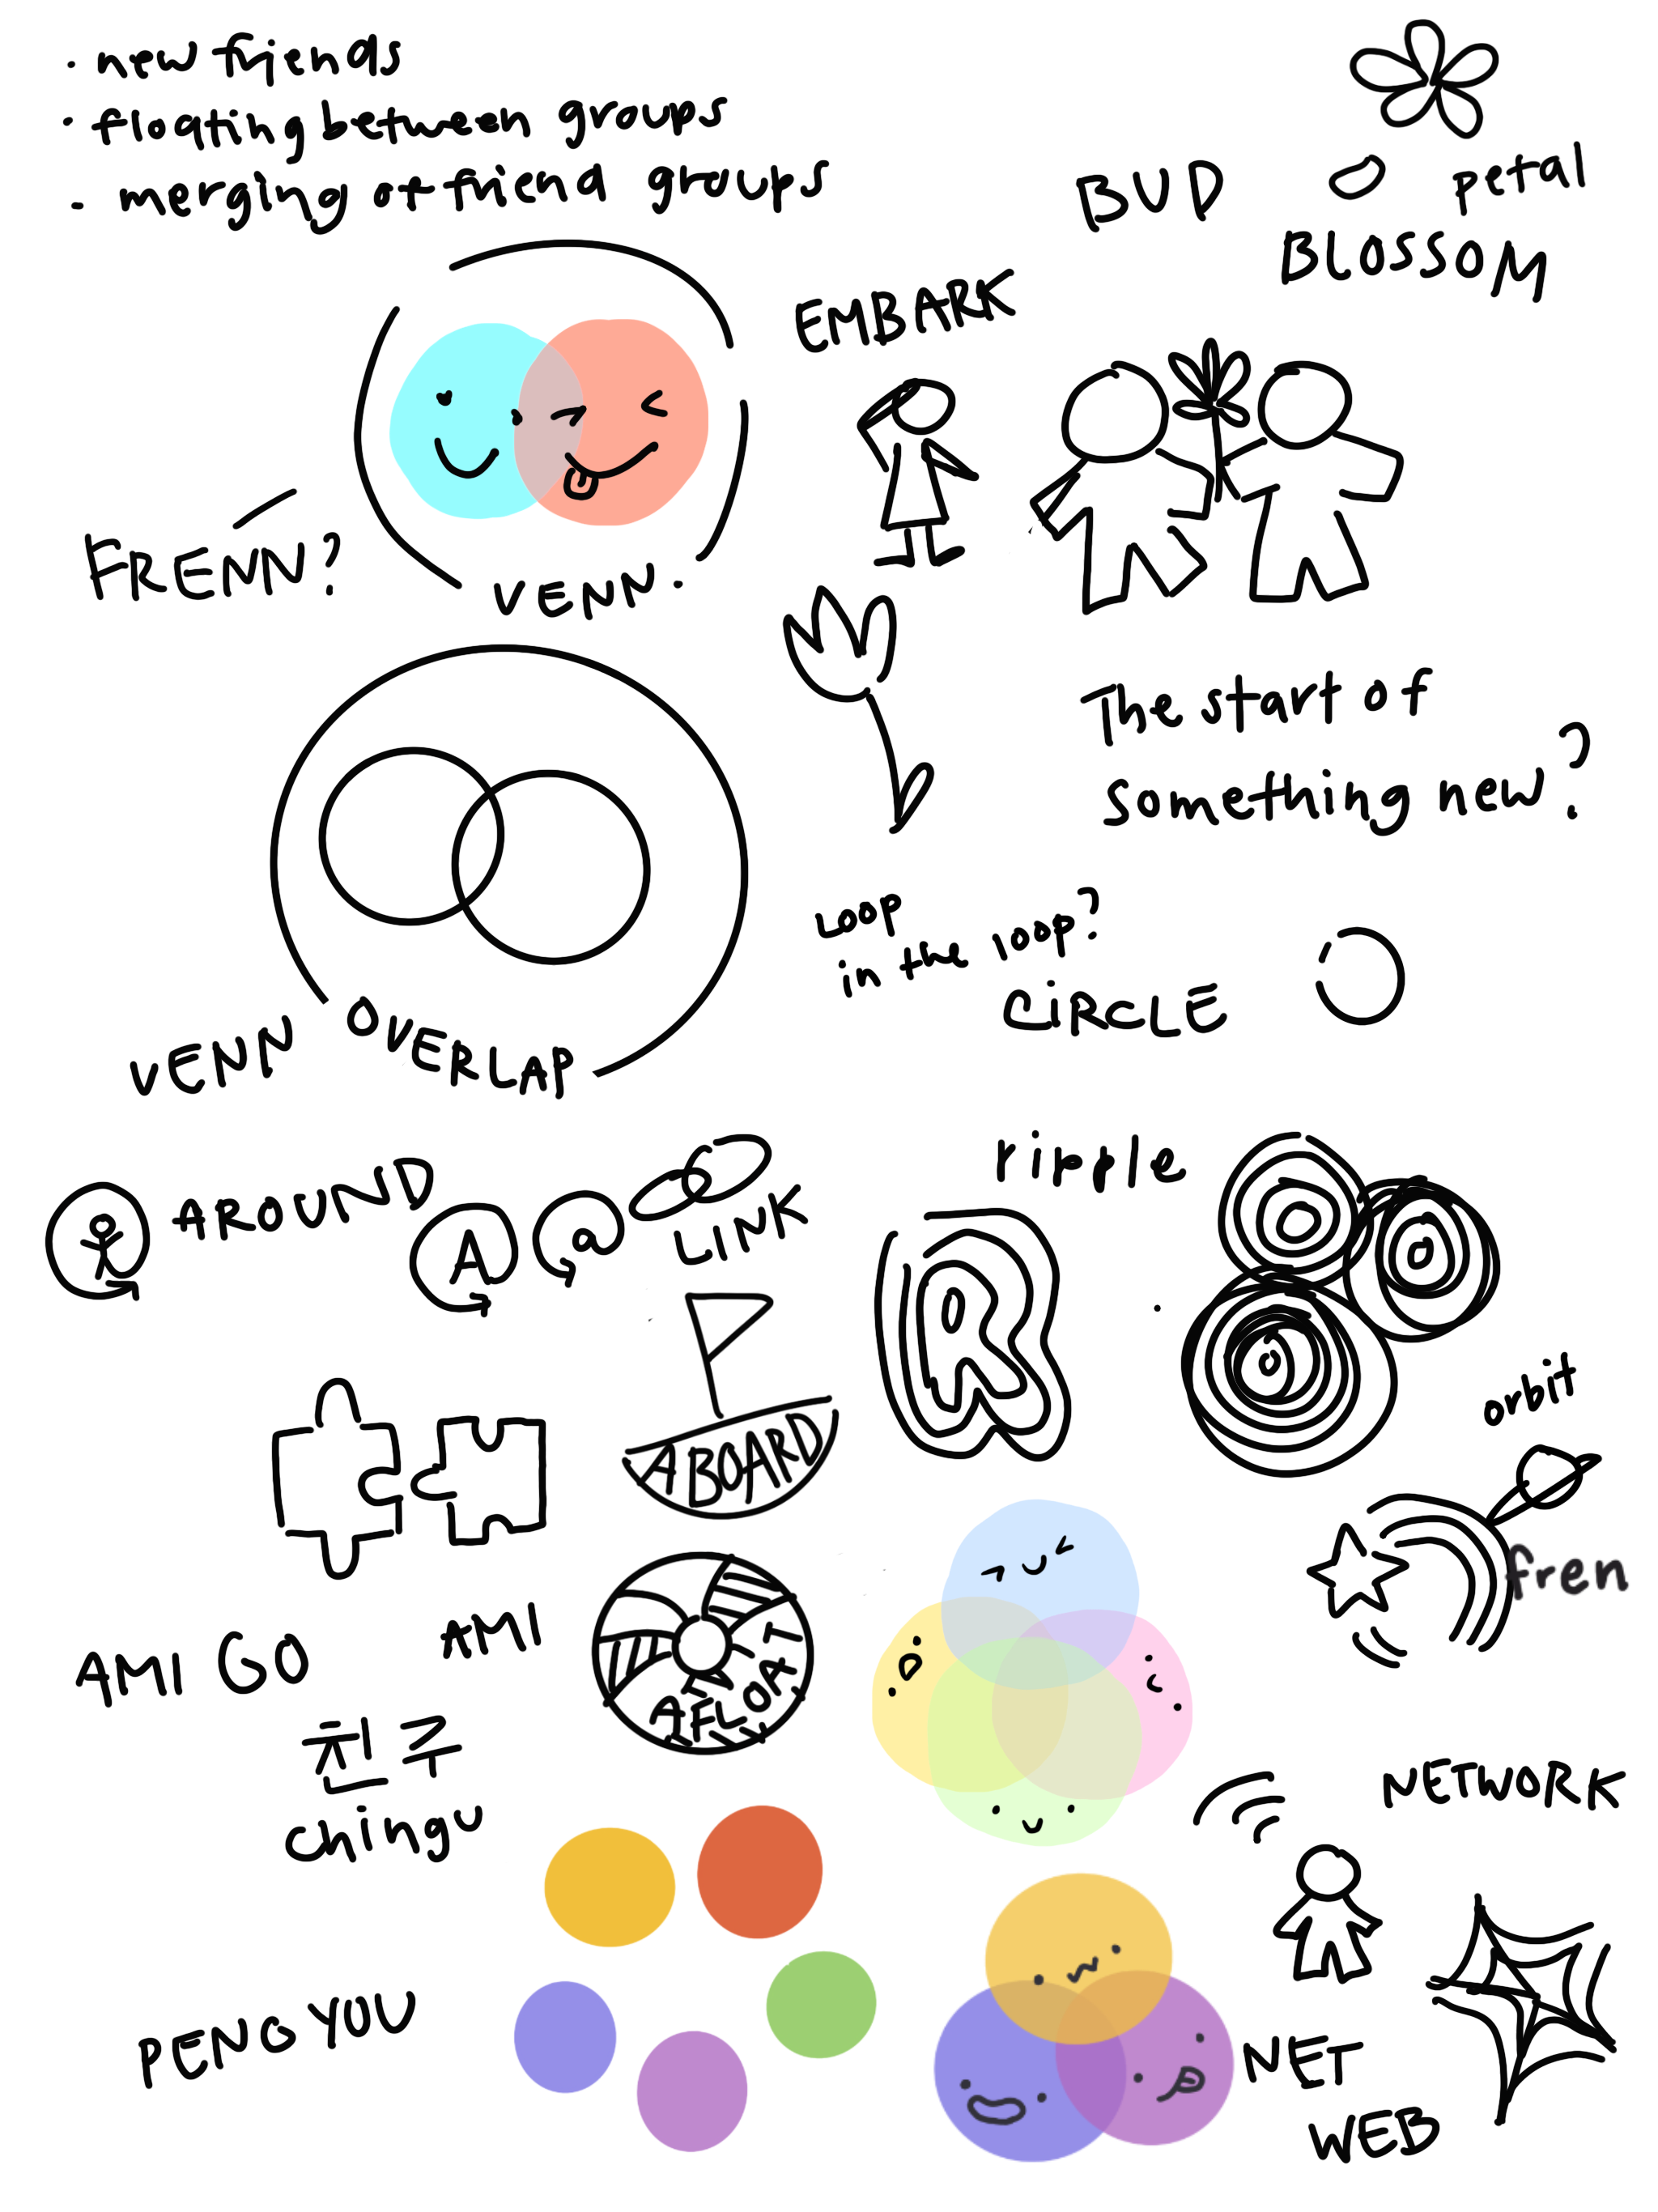 · new friends
· floating between groups
- merging of friend groups
BUD
petal
BLOSSOM
EMBARK
FRENN?
VENN.
The start of
something new?
Loop
in the loop?
CIRCLE
VENN OVERLAP
AROUND
A
a
LINK
ripple
R
ABOARD
orbit
fren
AMIGO
AMI
AFLOAT
친주
chingu
NETWORK
PENGYOU
NET
WEB